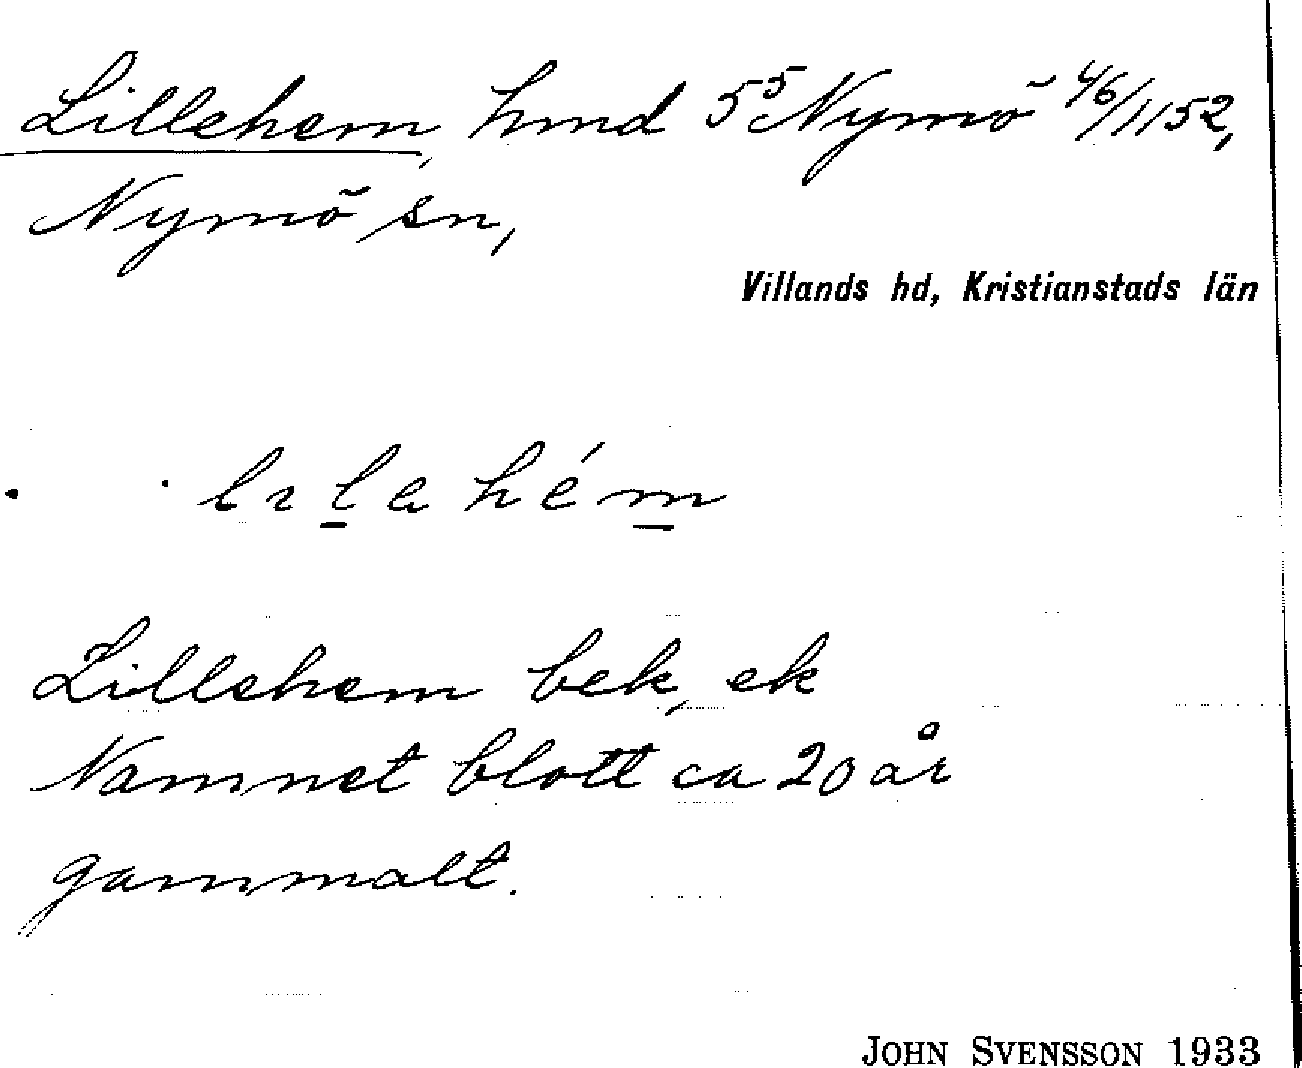 Lillehem, hmd 5⁵ Nymö 4/6/1152,
Nymö sn,
Villands hd, Kristianstads län
lılahém
Lillehem bek, ek
Namnet blott ca 20 år
gammalt.
JOHN SVENSSON 1933